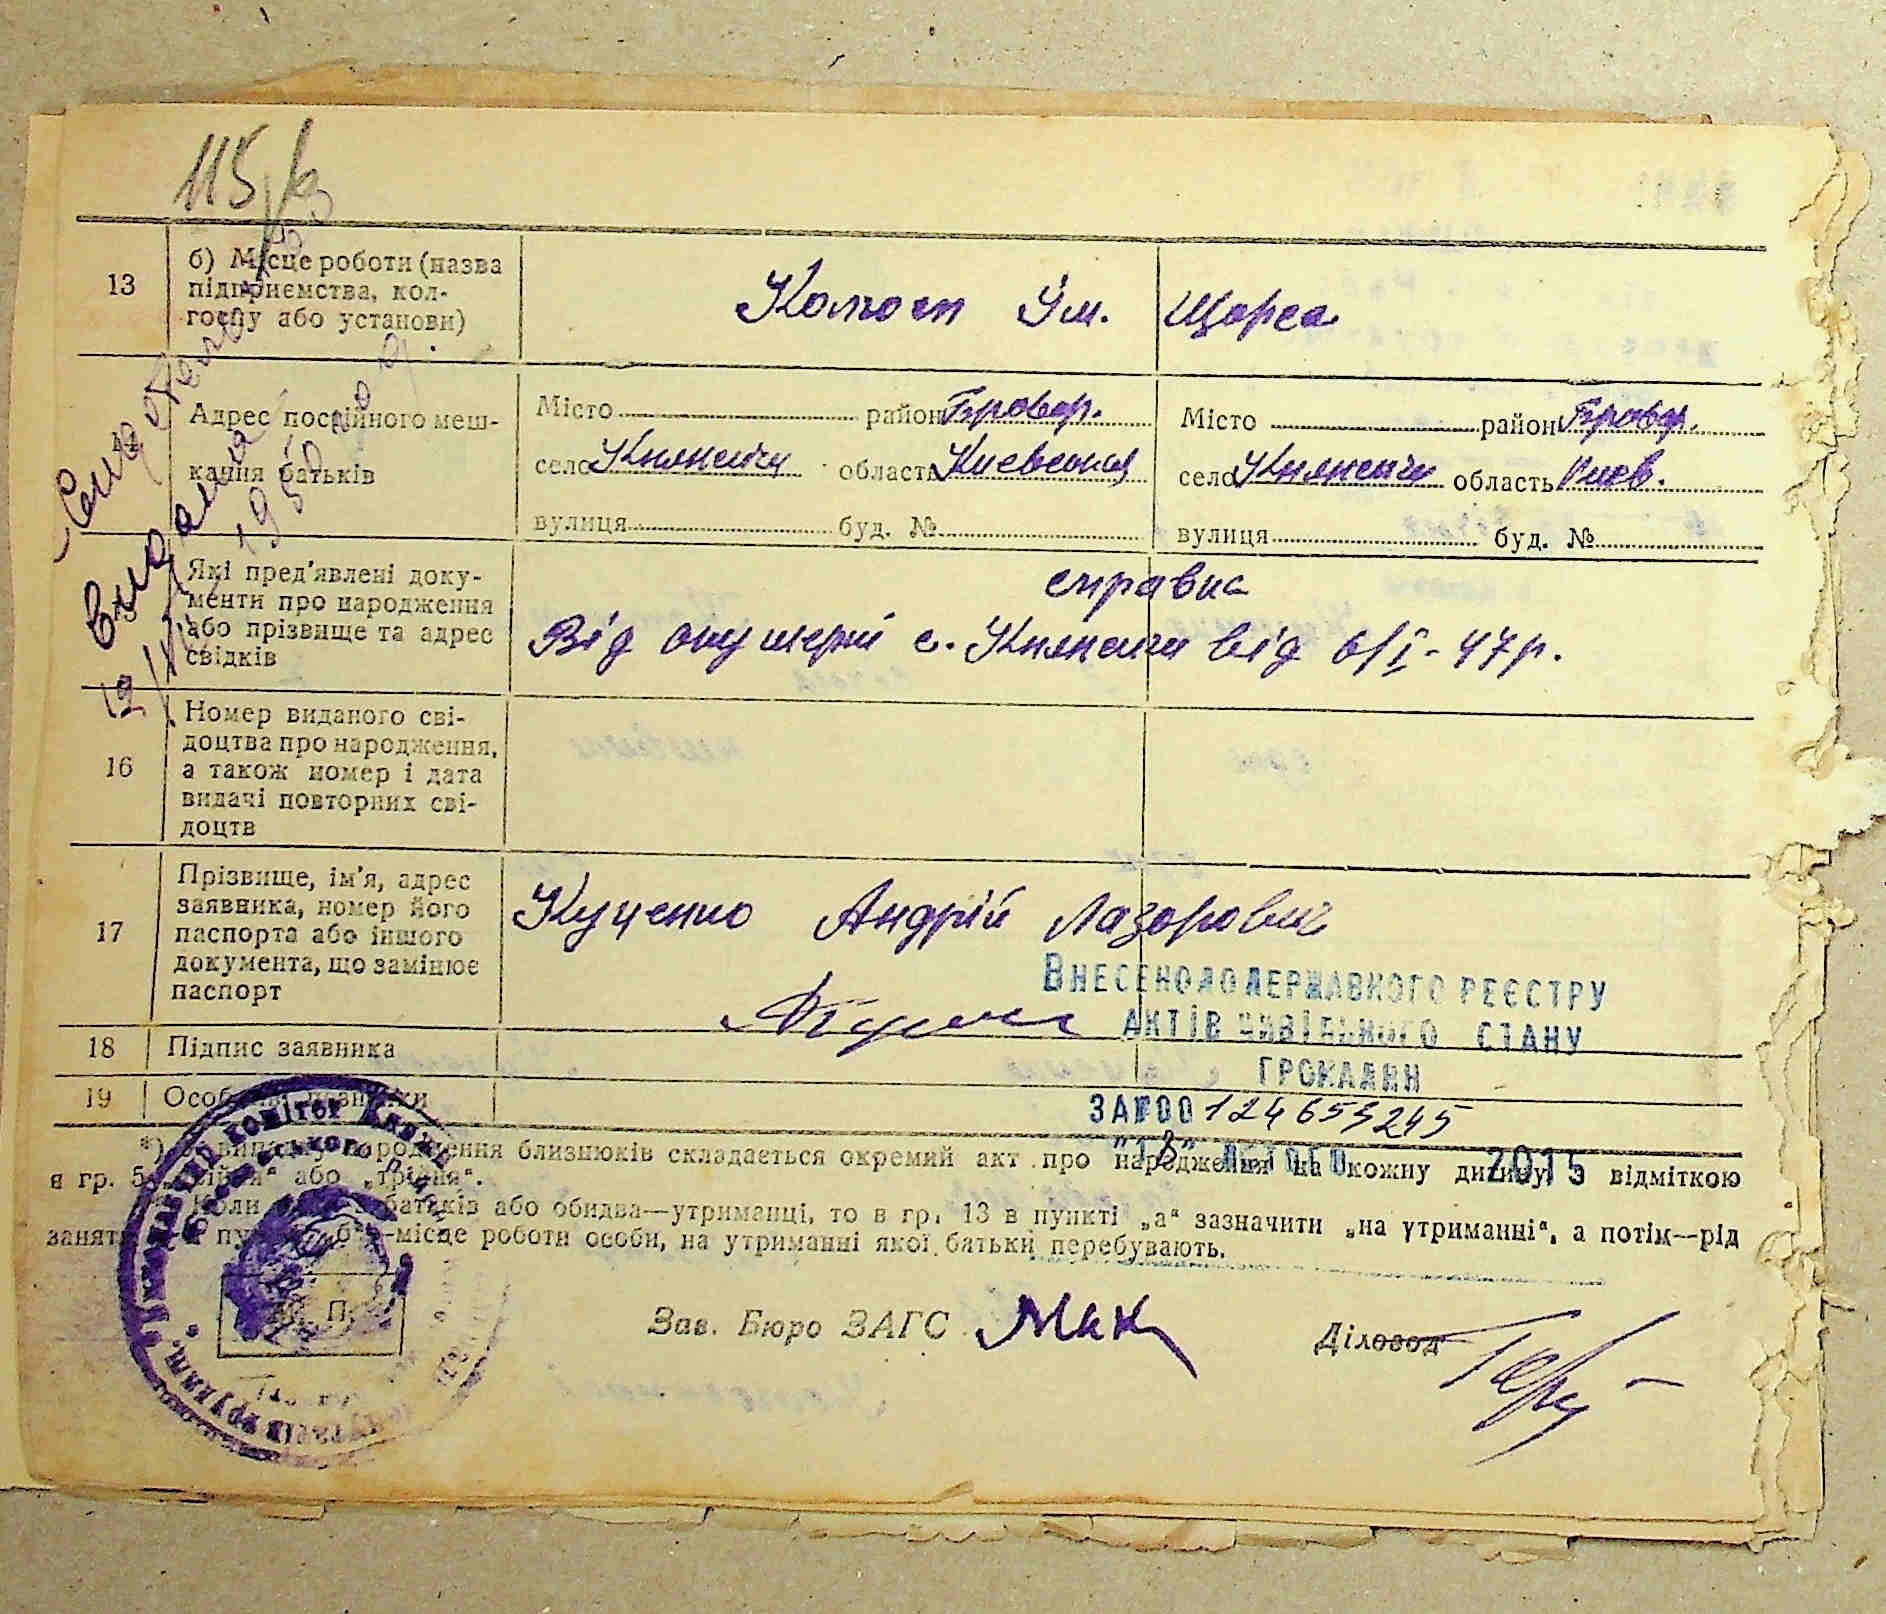 115/
13
б) Місце роботи (назва
підприємства, кол-
госпу або установи)
Колгосп Ім. Щорса
14
Адрес постійного меш-
кання батьків
Місто район Бровар.
село Княжичи область Киевская
вулиця буд. №
Місто район Бровар.
село Княжичи область Киев.
вулиця буд. №
15
Які пред'явлені доку-
менти про народження
або прізвище та адрес
свідків
справка
Від акушерки с. Княжичи від 6/I-47р.
16
Номер виданого сві-
доцтва про народження,
а також номер і дата
видачі повторних сві-
доцтв
17
Прізвище, ім'я, адрес
заявника, номер його
паспорта або іншого
документа, що замінює
паспорт
Куценко Андрій Лазорович
18
Підпис заявника
19
Особливі
Внесено до державного реєстру
актів цивільного стану
громадян
за №00124653245
"18" лютого 2015
*) випадку народження близнюків складається окремий акт про народження на кожну дитину з відміткою
в гр. 5 або „трійня“.
Коли батьків або обидва—утриманці, то в гр. 13 в пункті „а“ зазначити „на утриманні“, а потім—рід
занят місце роботи особи, на утриманні якої батьки перебувають.
М. П.
Зав. Бюро ЗАГС
Діловод
Видана